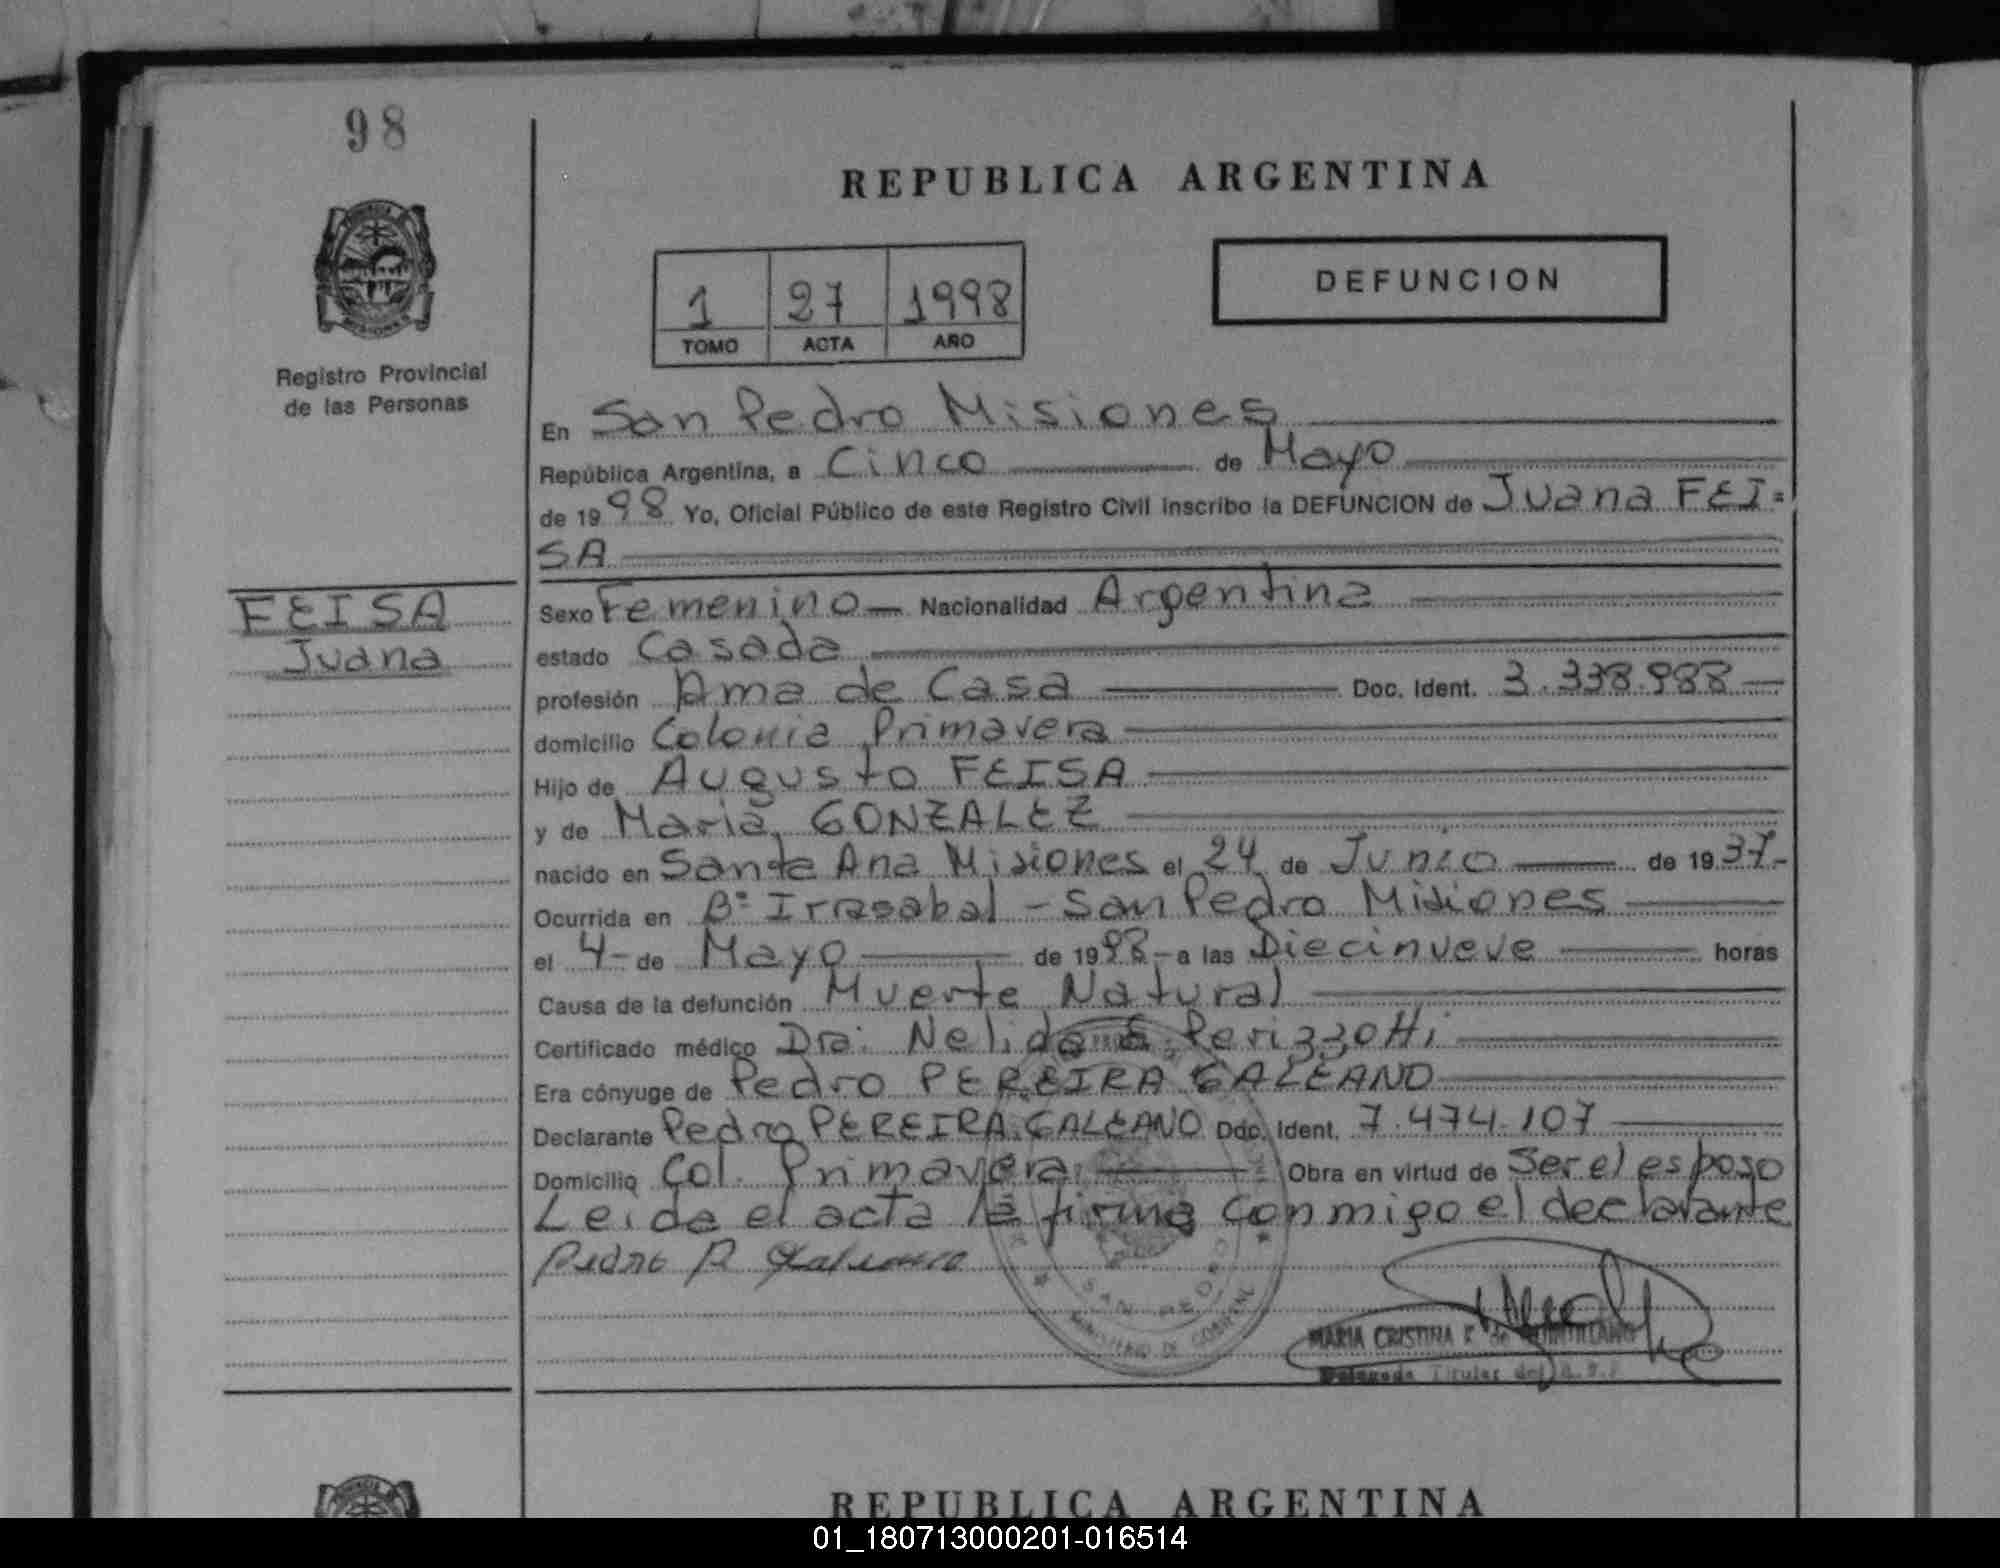 98
REPUBLICA ARGENTINA
DEFUNCION
1 27 1998
TOMO ACTA AÑO
MISIONES
Registro Provincial
de las Personas
En San Pedro Misiones
República Argentina, a Cinco de Mayo
de 1998 Yo, Oficial Público de este Registro Civil inscribo la DEFUNCION de Juana FEI=
SA
FEISA
Juana
Sexo Femenino Nacionalidad Argentina
estado Casada
profesión Ama de Casa Doc. Ident. 3.338.988
domicilio Colonia Primavera
Hijo de Augusto FEISA
y de Maria GONZALEZ
nacido en Santa Ana Misiones el 24 de Junio de 1937-
Ocurrida en B° Irrasabal - San Pedro Misiones
el 4- de Mayo de 1998- a las Diecinueve horas
Causa de la defunción Muerte Natural
Certificado médico Dra: Nelida Perizzotti
Era cónyuge de Pedro PEREIRA GALEANO
Declarante Pedro PEREIRA GALEANO Doc. Ident. 7.474.107
Domicilio Col. Primavera Obra en virtud de Ser el esposo
Leida el acta la firma conmigo el declarante
Pedro P Galeano
SAN PEDRO
MINISTERIO DE GOBIERNO
MARIA CRISTINA F. de
Delegada Titular del R.P.P
REPUBLICA ARGENTINA
01_180713000201-016514